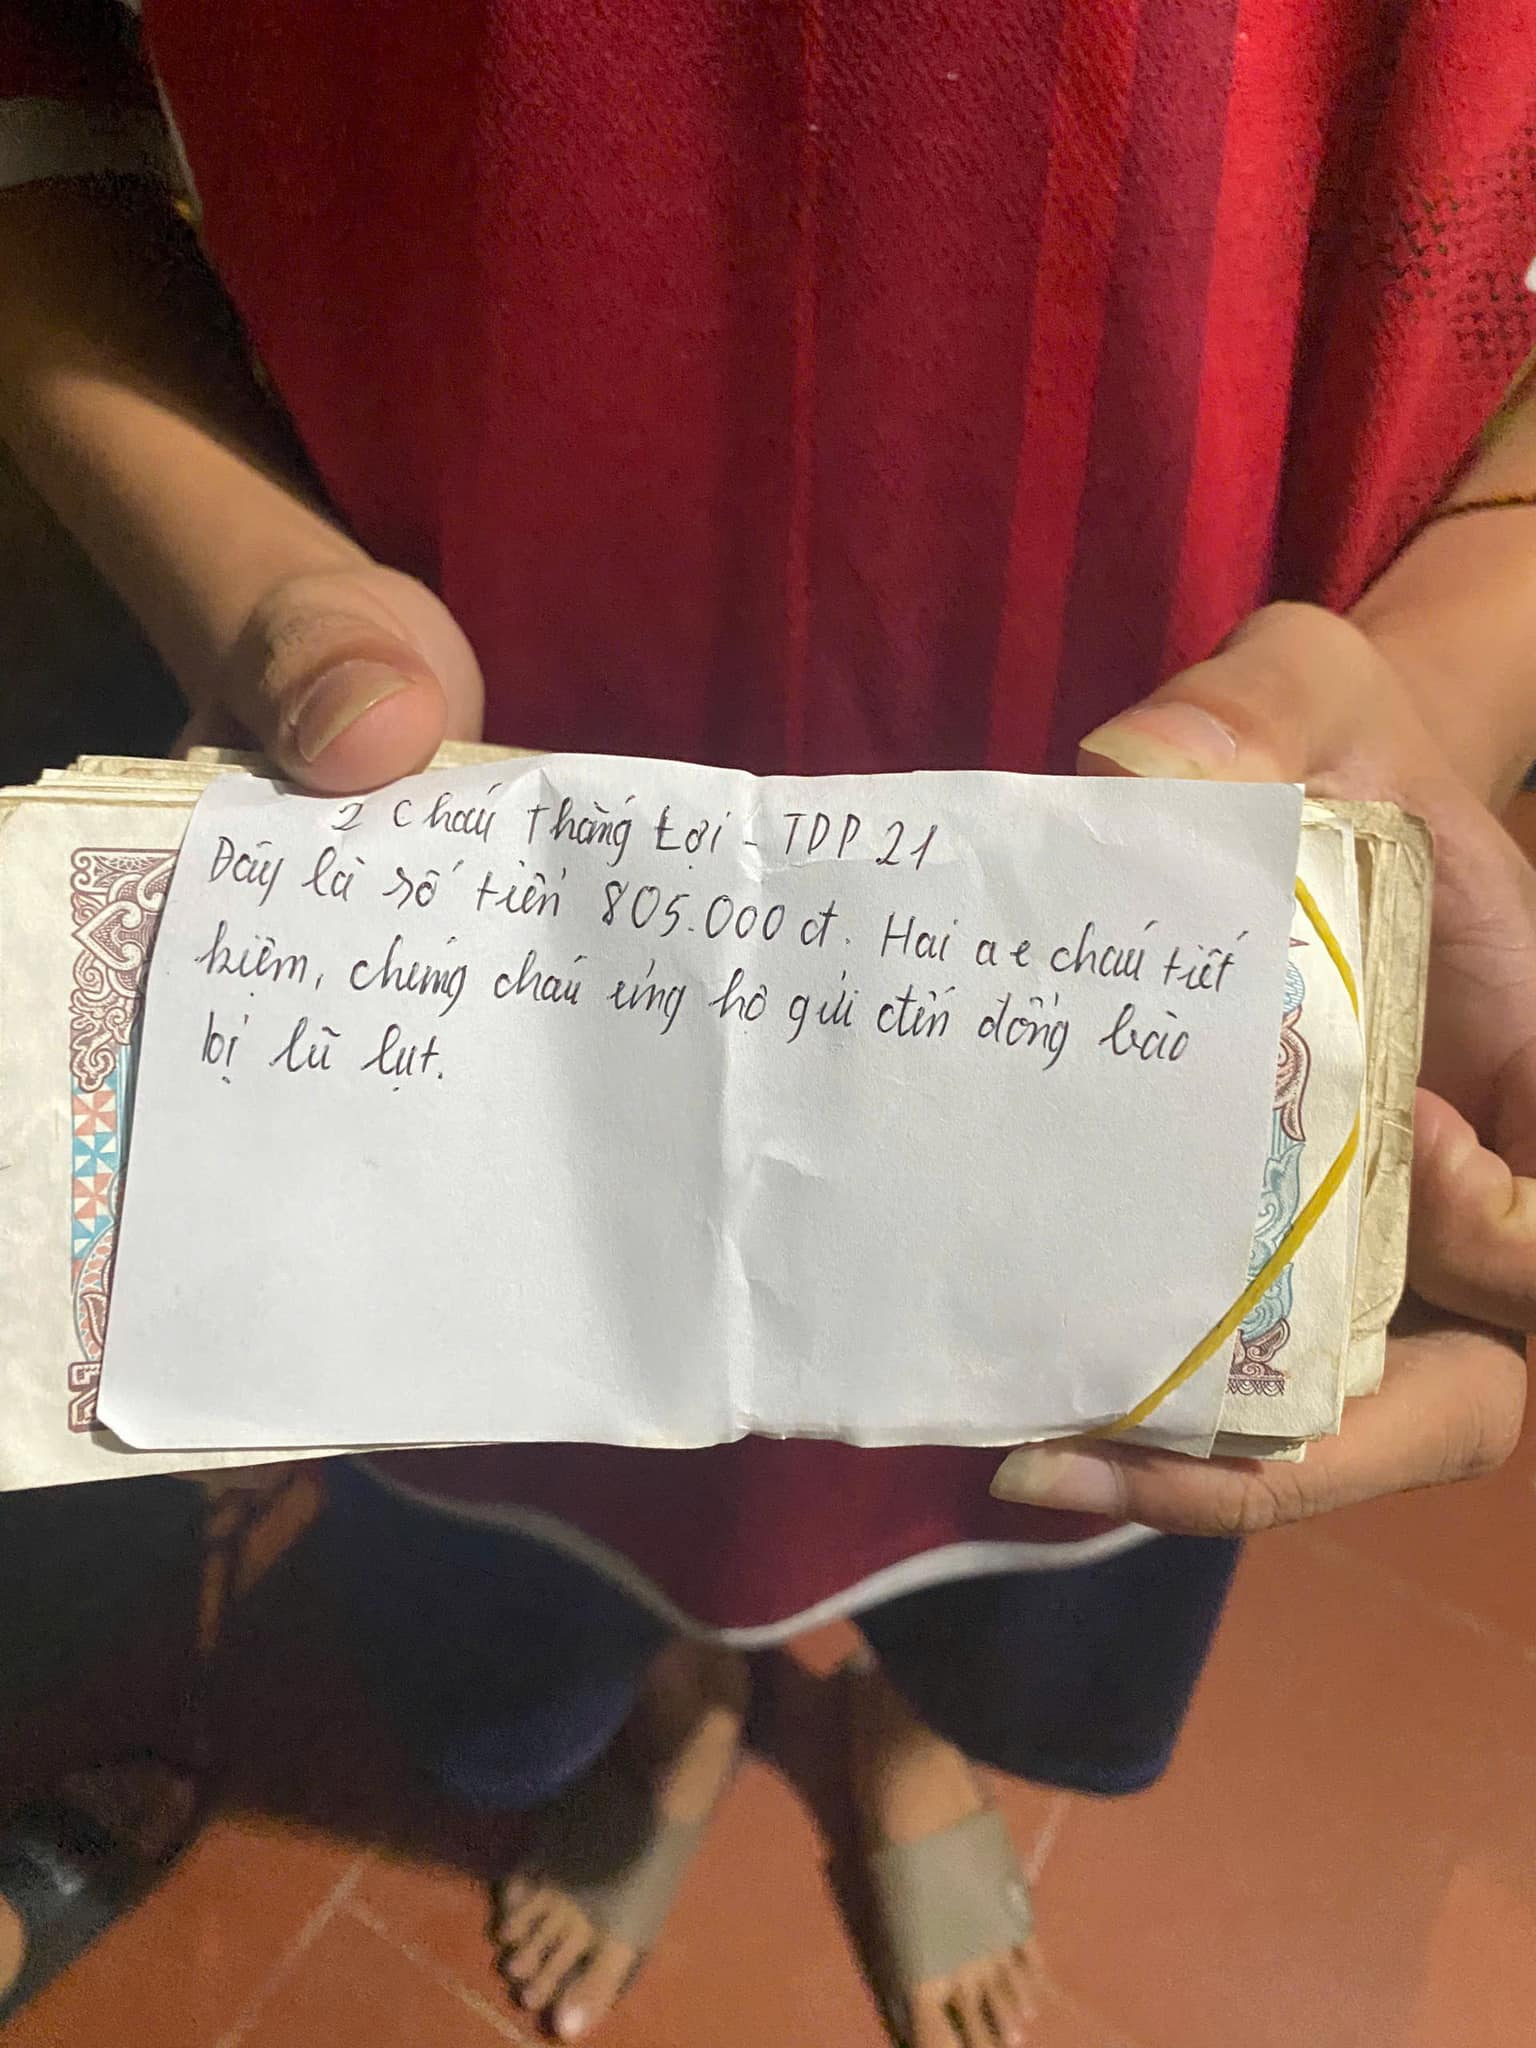 2 cháu Thắng Lợi - TDP 21
Đây là số tiền 805.000 đ. Hai a e cháu tiết
kiệm, chúng cháu ủng hộ gửi đến đồng bào
bị lũ lụt.